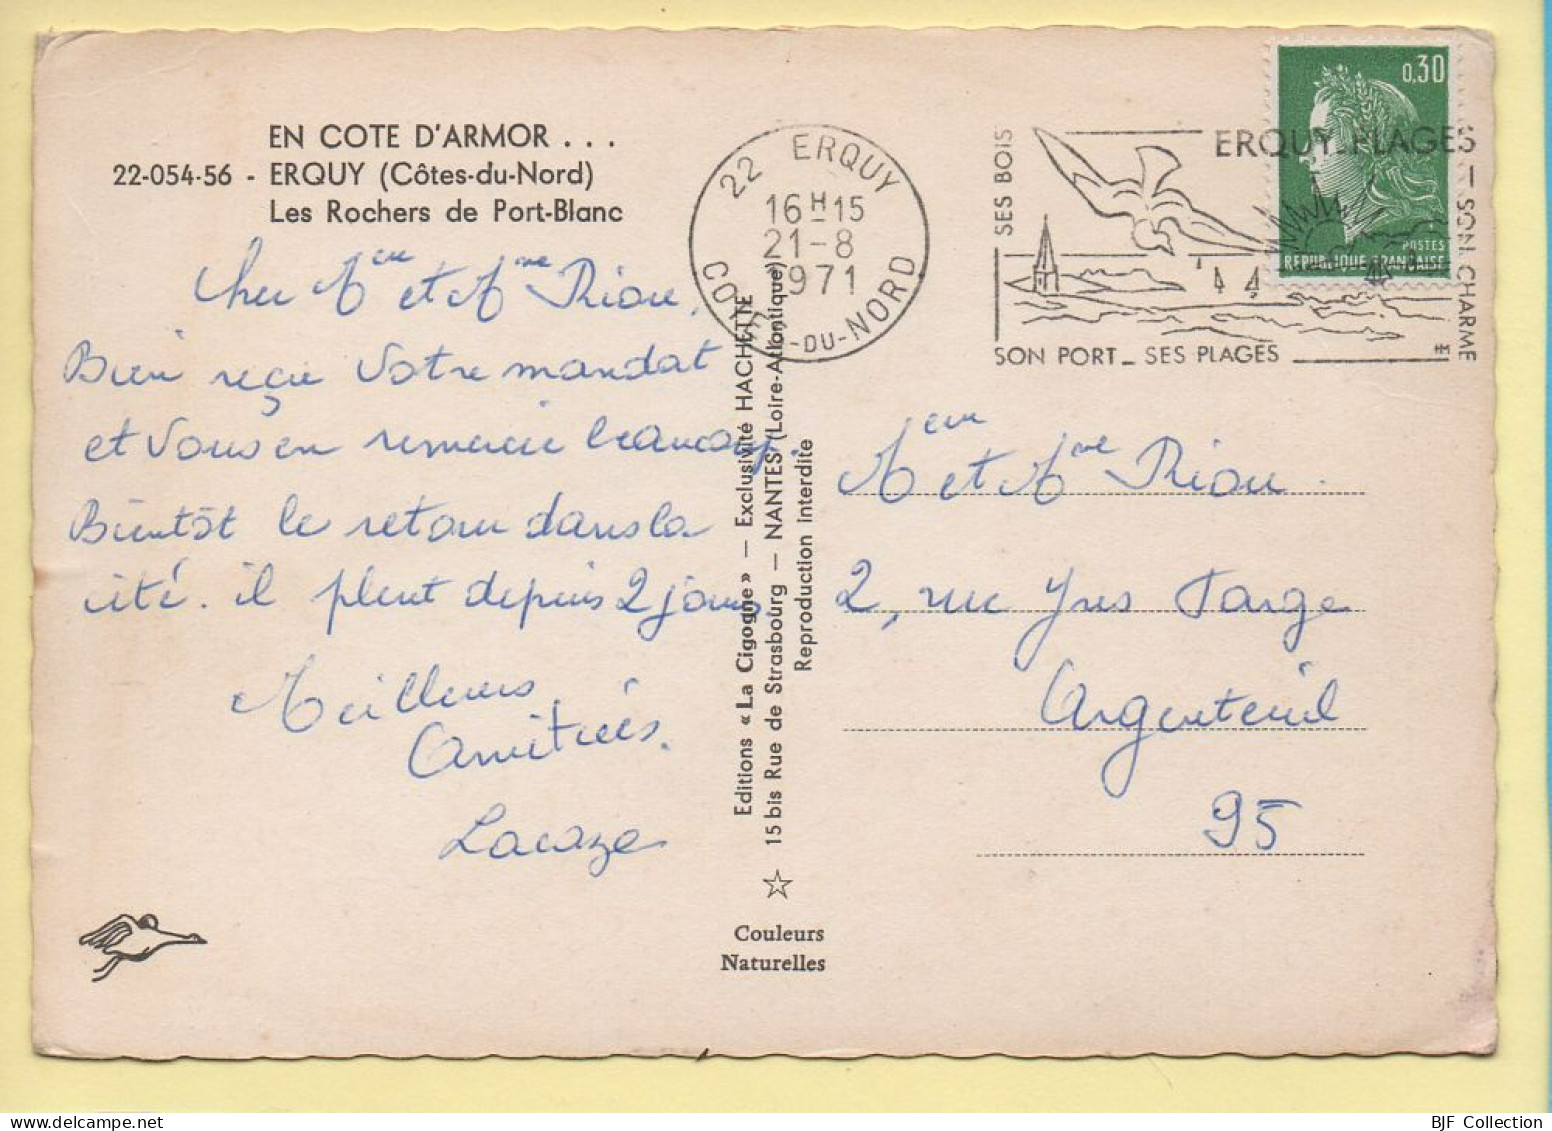 EN COTE D'ARMOR . . .
22-054-56 - ERQUY (Côtes-du-Nord)
Les Rochers de Port-Blanc
22 ERQUY
16 H 15
21-8
1971
COTES-DU-NORD
0,30
POSTES
REPUBLIQUE FRANÇAISE
ERQUY-PLAGES
SES BOIS
SON CHARME
SON PORT _ SES PLAGES
Cher Meur et Mme Riou,
Bien reçu votre mandat
et vous en remercie beaucoup.
Bientôt le retour dans la
cité. il pleut depuis 2 jours
Meilleures
Amitiés.
Lacaze
Editions « La Cigogne » — Exclusivité HACHETTE
15 bis Rue de Strasbourg — NANTES (Loire-Atlantique)
Reproduction interdite
Couleurs
Naturelles
Meur et Mme Riou.
2, rue Yves Farge
Argenteuil
95
BJF Collection